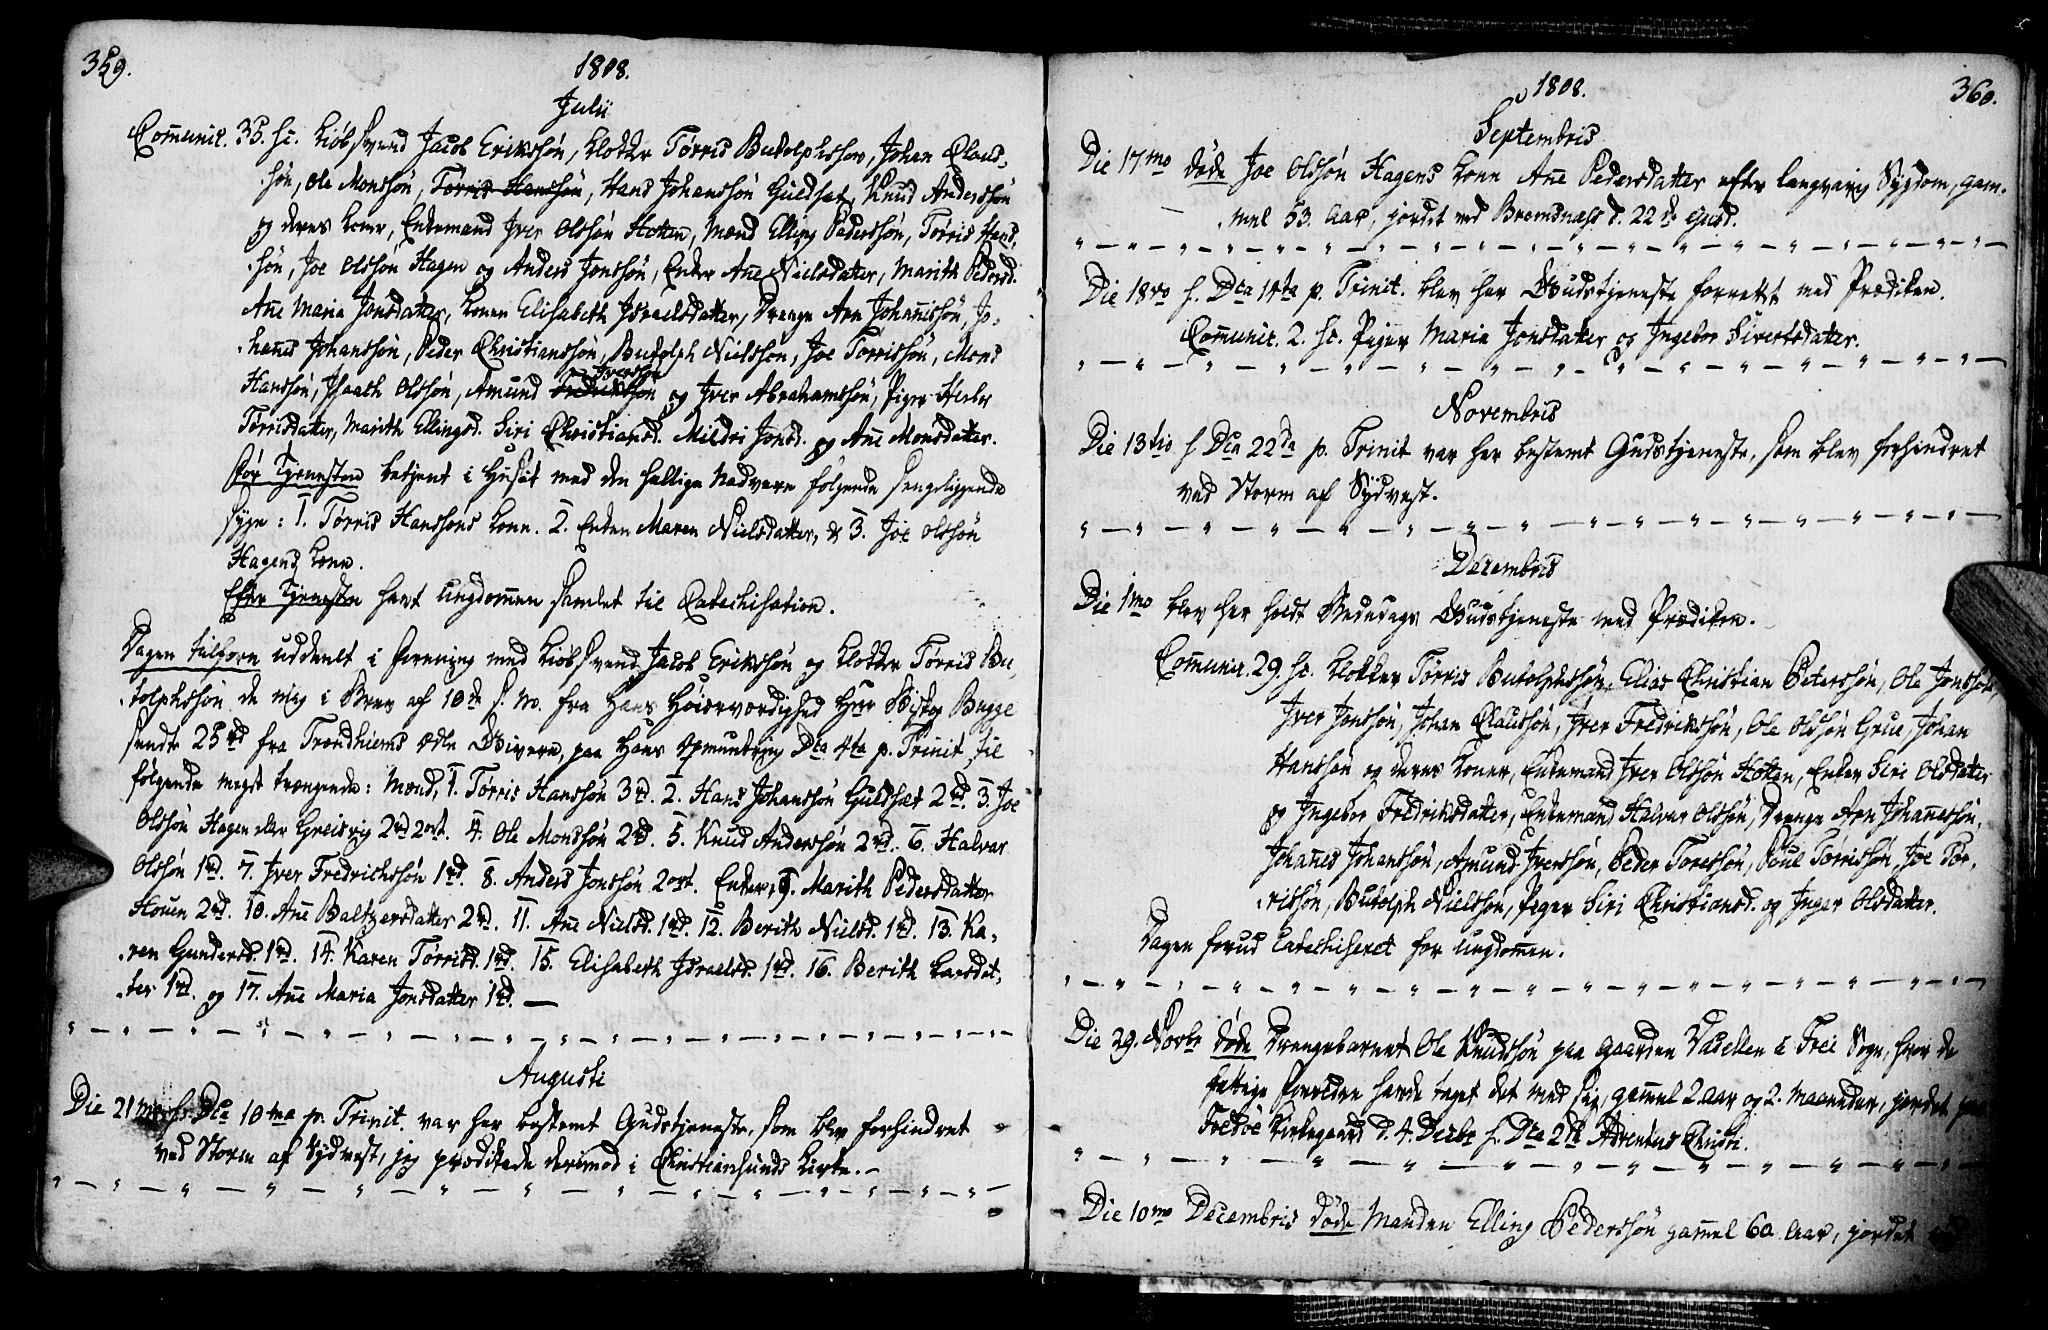 359.
1808.
Julii
Com̄unic. 35. sc. Kiøbsvend Jacob Eriksøn, Klokker Tørris Butolphssøn, Johan Claus-
søn, Ole Monssøn, Tørris Hanssøn, Hans Johanssøn Guldset, Knud Anderssøn
og deres Koner, Enkemand Iver Olssøn Hotten, Mænd Elling Pederssøn, Tørris Hans-
søn, Joe Olssøn Hagen og Anders Jonssøn, Enker An̄e Nielsdatter, Marith Pedersd.
An̄e Maria Jonsdatter, Konen Elisabeth Israelsdatter, Drenge Arn Johan̄issøn, Jo-
han̄es Johanssøn, Peder Christianssøn, Butolph Nielssøn, Joe Torrissøn, Mons
Hanssøn, Isaach Olssøn, Amund Fredrikssøn Iverssøn og Iver Abrahamssøn, Piger
Tørrisdatter, Marith Ellingsd. Siri Christiansd. Mildri Jonsd. og An̄e Monsdatter.
Før Tjenesten betjent i Huset med den hellige Nadvere følgende sengeliggende
syge: 1. Tørris Hanssøns Kone. 2. Enken Maren Nielsdatter, & 3. Joe Olssøn
Hagens Kone.
Efter Tjenesten havt Ungdommen samlet til Catechisation.
Dagen tilforn uddeelt i Forening med Kiøbsvend Jacob Erikssøn og Klokker Tørris Bu-
tolphssøn de mig i Brev af 10de s. M. fra Hans Høiærværdighed Herr Biskop Bugge
sendte 25 rd fra Trondhiems ædle Givere, paa Hans Opmuntring Dca 4ta p. Trinit. til
følgende meest trængende: Mænd, 1. Tørris Hanssøn 3 rd. 2. Hans Johanssøn Guldsæt 2 rd. 3. Joe
Olssøn Hagen eller Greisvig 2 rd 2 ort. 4. Ole Monssøn 2 rd. 5. Knud Anderssøn 2 rd. 6. Halvar
Olssøn 1 rd. 7. Iver Fredrichssøn 1 rd. 8. Anders Jonssøn 2 ort. Enker, 9. Marith Pedersdatter
Houen 2 rd. 10. An̄e Baltzersdatter 2 rd. 11. An̄e Nielsd. 1 rd. 12. Berith Nielsd. 1 rd. 13. Ka-
ren Gundersd. 1 rd. 14. Karen Tørrisd. 1 rd. 15. Elisabeth Israelsd. 1 rd. 16. Berith Larsdat-
ter 1 rd. og 17. An̄e Maria Jonsdatter 1 rd. —
Augusti
Die 21mo s. Dca 10ma p. Trinit. var her bestemt Gudstjeneste, som blev forhindret
ved Storm af Sydvest, jeg prædikede derimod i Christiansunds Kirke. —
1808.
360.
Septembris
Die 17mo døde Joe Olssøn Hagens Kone An̄e Pedersdatter efter langvarig Sygdom, gam-
mel 53. Aar, jordet ved Bremdnæss d. 22de ejusd.
Die 18vo s. Dca 14ta p. Trinit. blev her Gudstjeneste forrettet med Prædiken.
Com̄unic. 2. sc. Piger Maria Jonsdatter og Ingebor Sivertsdatter.
Novembris
Die 13tio s Dca 22da p. Trinit var her bestemt Gudstjeneste, som blev forhindret
ved Storm af Sydvest.
Decembris
Die 1mo blev her holdt Bededags Gudstjeneste med Prædiken.
Com̄unic. 29. sc. Klokker Tørris Butolphssøn, Elias Christian Peterssøn, Ole Jonssøn
Iver Jonssøn, Johan Claussøn, Iver Fredrikssøn, Ole Olssøn Grue, Johan
Hanssøn og deres Koner, Enkemand Iver Olssøn Hotten, Enker Siri Olsdatter
og Ingebor Fredriksdatter, Enkemand Halvar Olssøn, Drenge Arn Johan̄essøn,
Johan̄es Johanssøn, Amund Iverssøn, Peder Toressøn, Poul Tørrissøn, Joe Tør-
rissøn, Butolph Nielssøn, Piger Siri Christiansd. og Inger Olsdatter.
Dagen forud Catechiseret for Ungdom̄en.
Die 29. Novbr døde Drengebarnet Ole Knudssøn paa Gaarden Vadellen i Frei Sogn, hvor de
fattige Forældre havde taget det med sig, gam̄el 2 Aar og 2. Maaneder, jordet paa
Fredøe Kirkegaard d. 4. Decbr s. Dca 2da Adventus Christi.
Die 10mo Decembris døde Manden Elling Pederssøn gam̄el 60 Aar, jordet